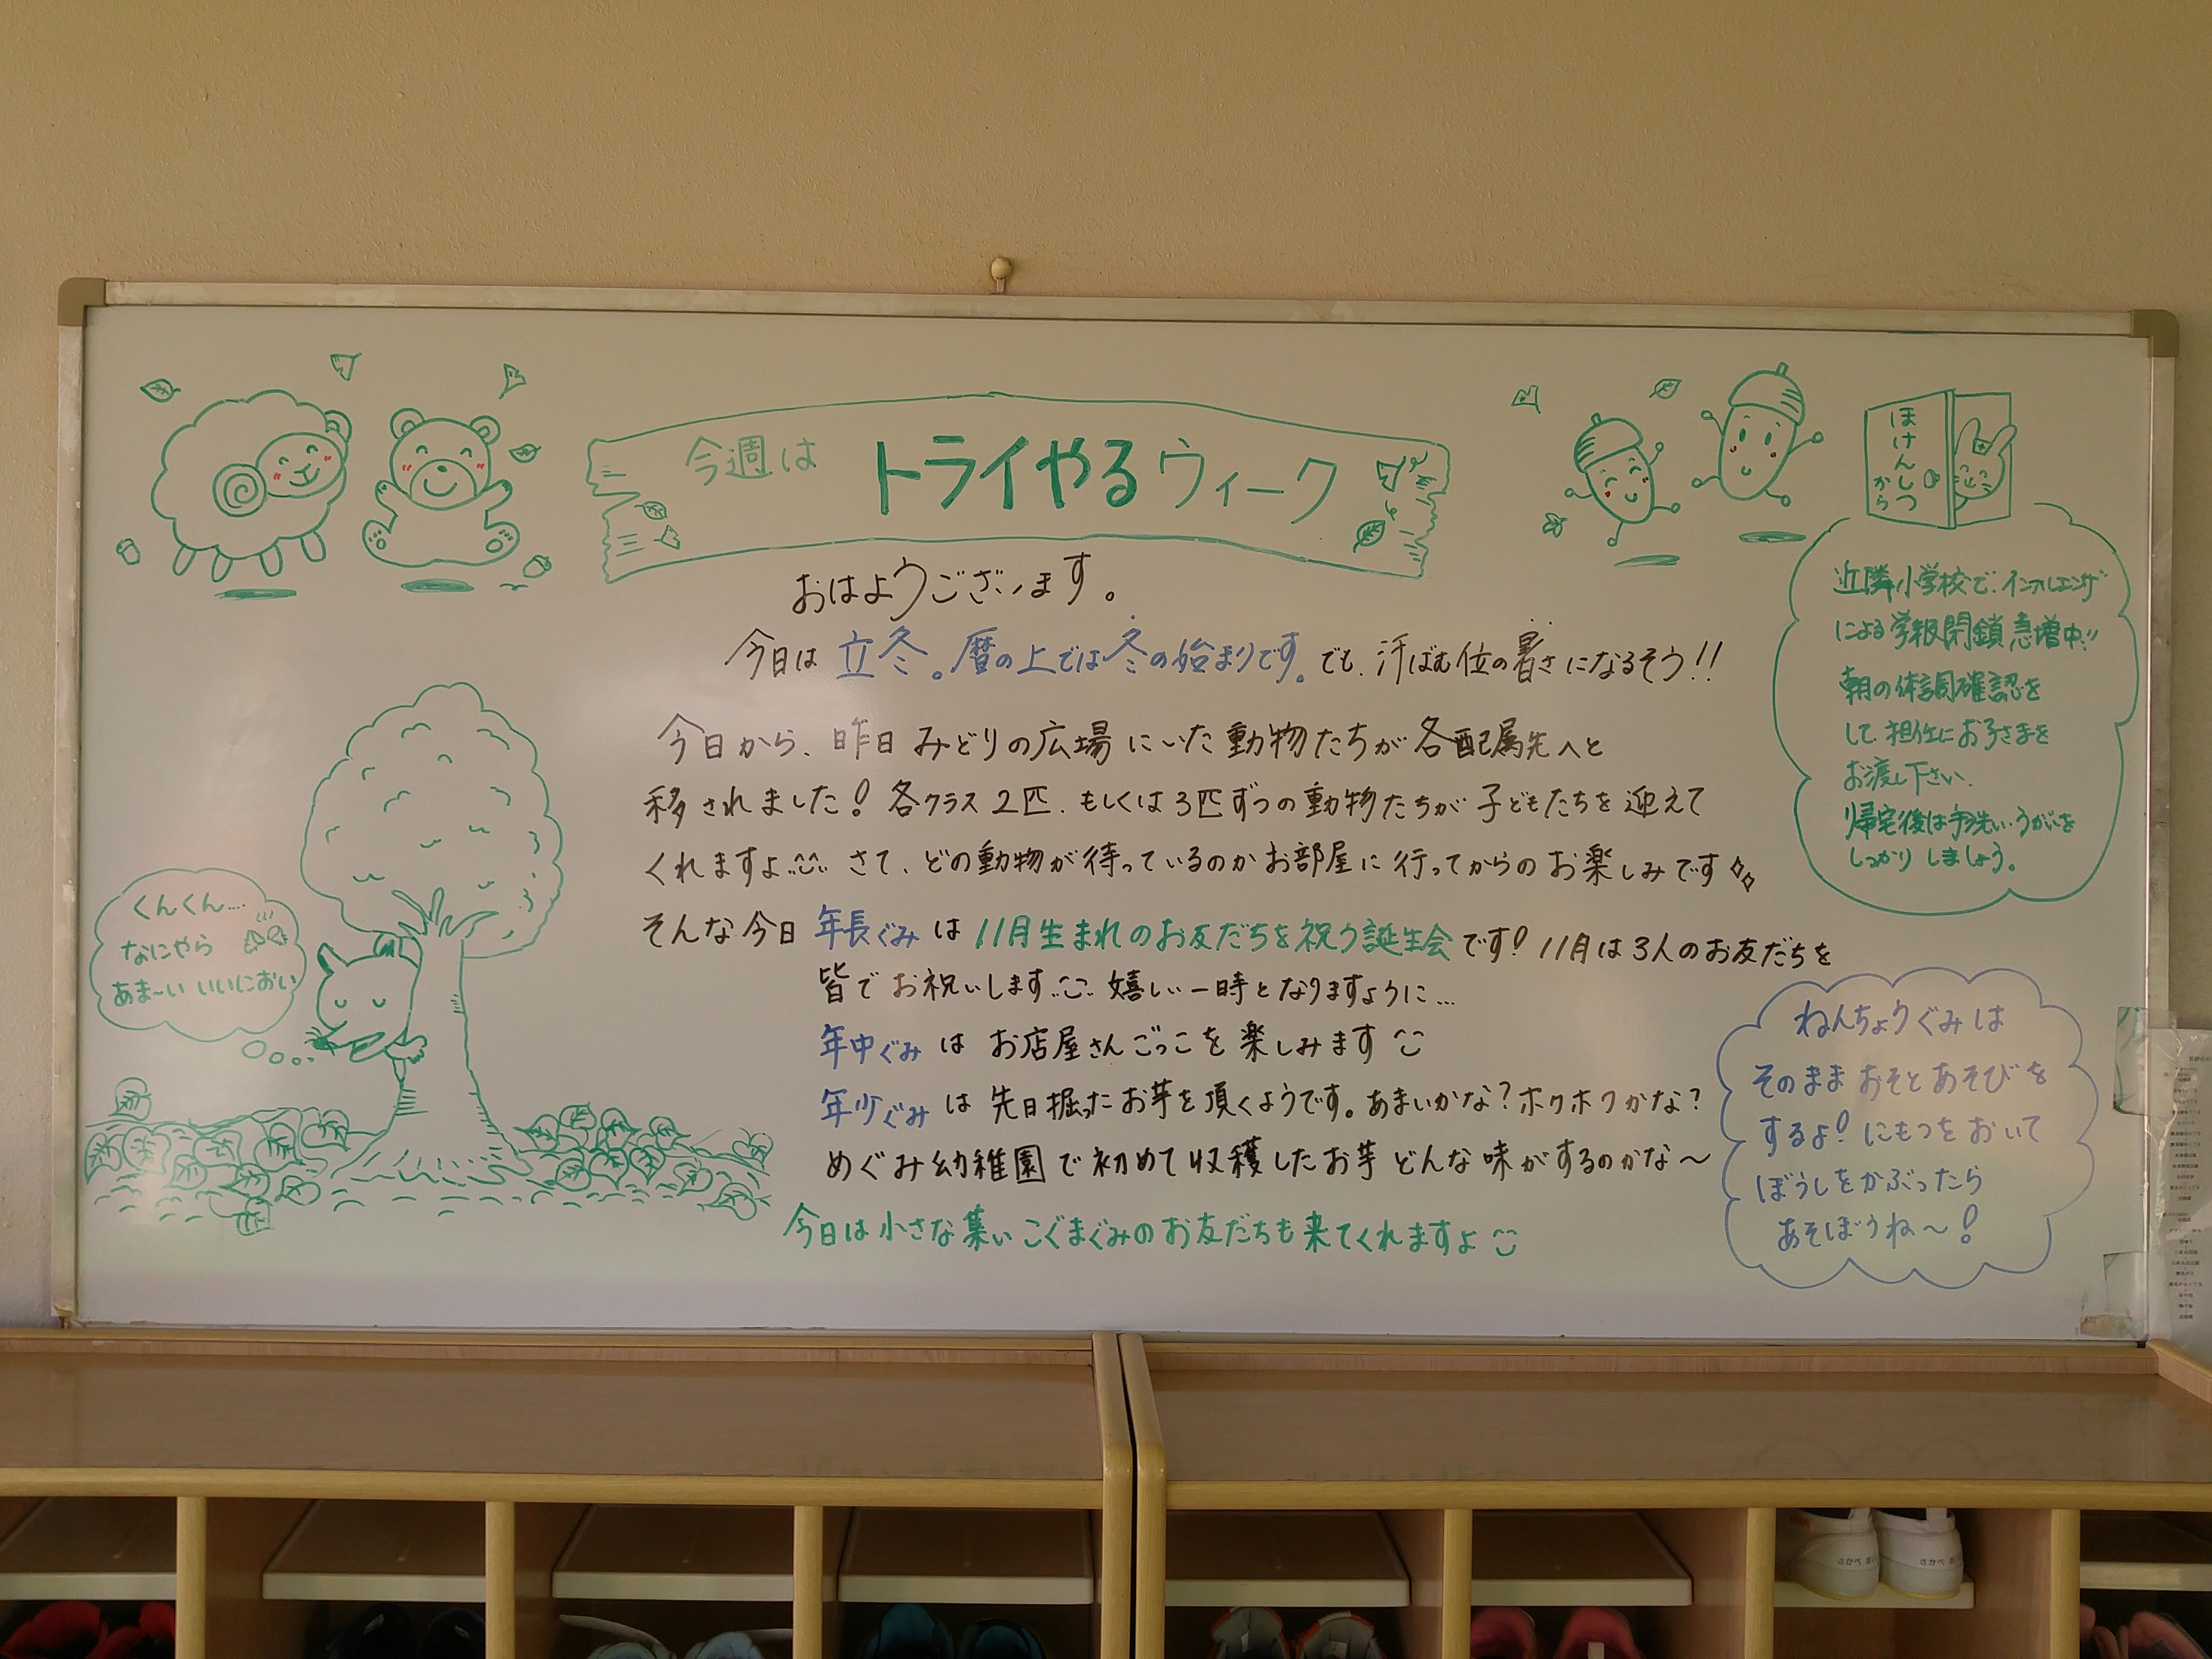 今週は トライやるウィーク
おはようございます。
今日は 立冬。暦の上では冬の始まりです。でも、汗ばむ位の暑さになるそう!!
今日から、昨日 みどりの広場 にいた 動物たちが 各配属先へと
移されました! 各クラス 2匹、もしくは 3匹ずつの 動物たちが 子どもたちを 迎えて
くれますよ さて、どの動物が待っているのかお部屋に行ってからのお楽しみです
そんな今日 年長ぐみ は 11月生まれのお友だちを祝う誕生会 です! 11月は3人のお友だちを
皆で お祝いします 嬉しい一時となりますように…
年中ぐみ は お店屋さんごっこを楽しみます
年少ぐみ は 先日掘ったお芋を頂くようです。あまいかな?ホクホクかな?
めぐみ幼稚園で初めて収穫したお芋 どんな味がするのかな〜
今日は小さな集い こぐまぐみのお友だちも来てくれますよ
ほけんしつ
から
近隣小学校で、インフルエンザ
による学級閉鎖 急増中!!
朝の体調確認を
して、担任にお子さまを
お渡し下さい。
帰宅後は手洗い、うがいを
しっかり しましょう。
くんくん....
なにやら
あま〜い いいにおい
ねんちょうぐみは
そのまま おそとあそびを
するよ! にもつをおいて
ぼうしをかぶったら
あそぼうね〜!